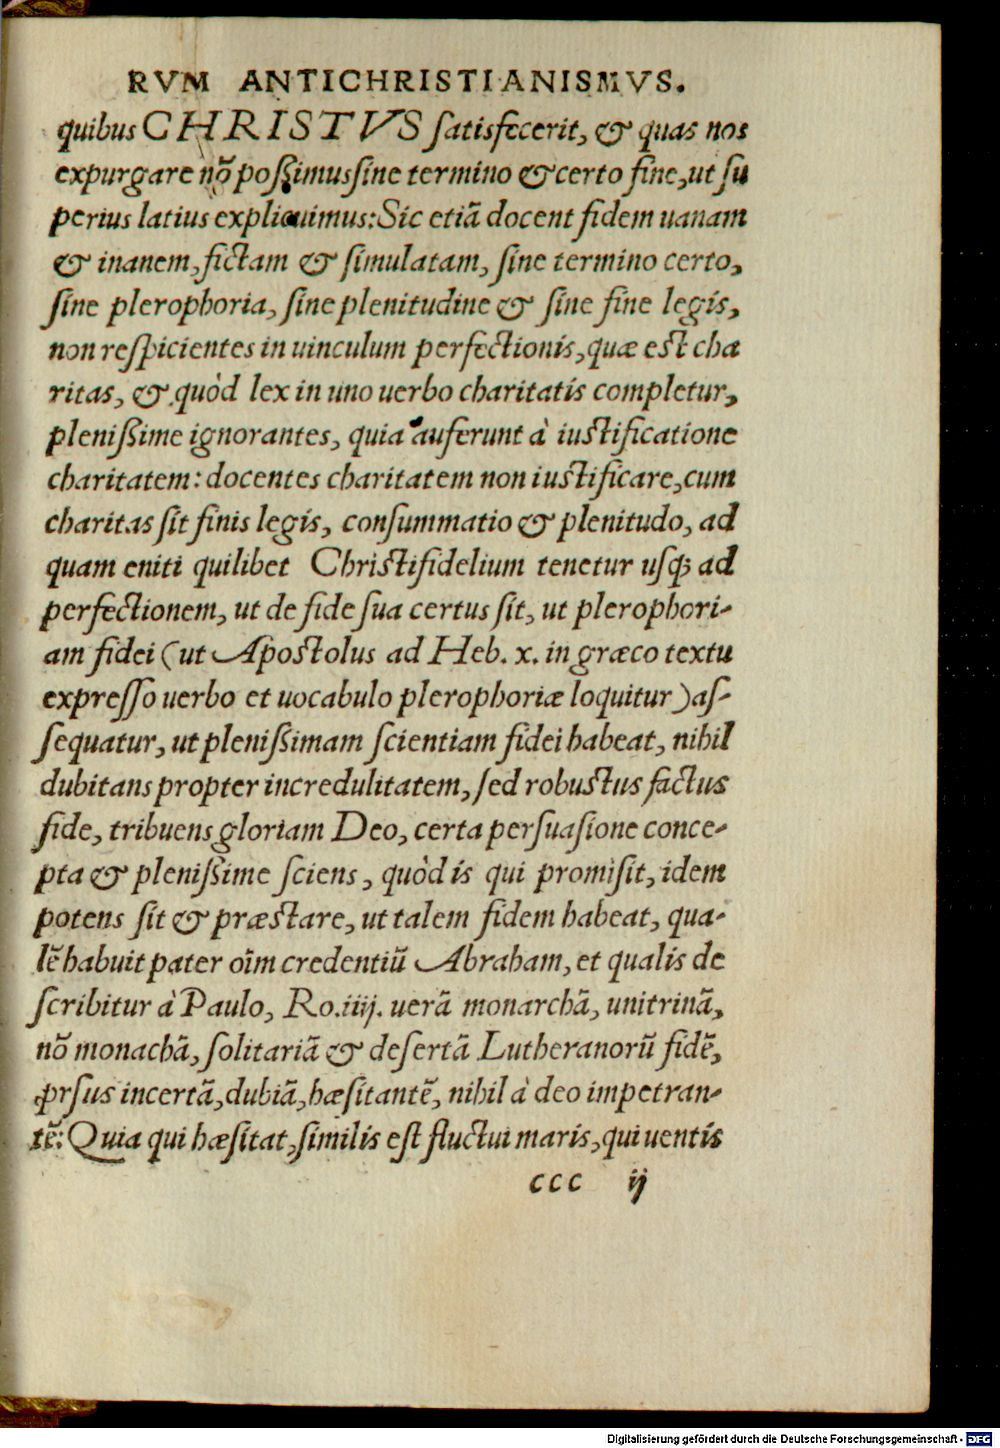 RVM ANTICHRISTIANISMVS.
quibus CHRISTVS ſatisfecerit, & quas nos
expurgare nõ poſſimus ſine termino & certo fine, ut ſu
perius latius explicuimus: Sic etiã docent fidem uanam
& inanem, fictam & ſimulatam, ſine termino certo,
ſine plerophoria, ſine plenitudine & ſine fine legis,
non reſpicientes in uinculum perfectionis, quæ eſt cha
ritas, & quòd lex in uno uerbo charitatis completur,
pleniſſime ignorantes, quia auferunt à iuſtificatione
charitatem: docentes charitatem non iuſtificare, cum
charitas ſit finis legis, conſummatio & plenitudo, ad
quam eniti quilibet Chriſtifidelium tenetur uſq; ad
perfectionem, ut de fide ſua certus ſit, ut plerophori-
am fidei (ut Apoſtolus ad Heb. x. in græco textu
expreſſo uerbo et uocabulo plerophoriæ loquitur) aſ-
ſequatur, ut pleniſſimam ſcientiam fidei habeat, nihil
dubitans propter incredulitatem, ſed robuſtus factus
fide, tribuens gloriam Deo, certa perſuaſione conce-
pta & pleniſſime ſciens, quòd is qui promiſit, idem
potens ſit & præſtare, ut talem fidem habeat, qua-
lẽ habuit pater oĩm credentiũ Abraham, et qualis de
ſcribitur à Paulo, Ro. iiij. uerã monarchã, unitrinã,
nõ monachã, ſolitariã & deſertã Lutheranorũ fidẽ,
ꝓrſus incertã, dubiã, hæſitantẽ, nihil à deo impetran-
tẽ: Quia qui hæſitat, ſimilis eſt fluctui maris, qui uentis
ccc ij
Digitalisierung gefördert durch die Deutsche Forschungsgemeinschaft - DFG